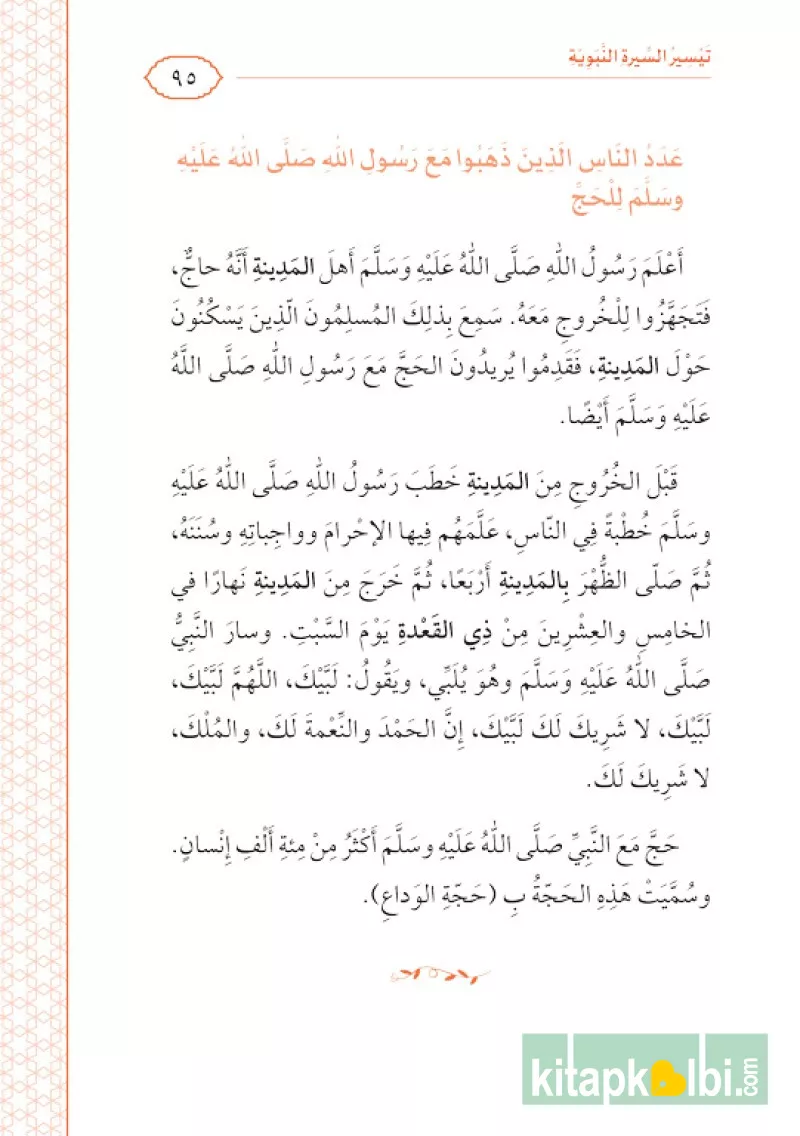 تَيْسِيرُ السِّيرةِ النَّبَوِيَّةِ
٩٥
عَدَدُ النَّاسِ الَّذِينَ ذَهَبُوا مَعَ رَسُولِ اللهِ صَلَّى اللهُ عَلَيْهِ
وسَلَّمَ لِلْحَجِّ
أَعْلَمَ رَسُولُ اللهِ صَلَّى اللهُ عَلَيْهِ وَسَلَّمَ أَهلَ المَدِينةِ أَنَّهُ حاجٌّ،
فَتَجَهَّزُوا لِلْخُروجِ مَعَهُ. سَمِعَ بِذلِكَ المُسلِمُونَ الّذِينَ يَسْكُنُونَ
حَوْلَ المَدِينةِ، فَقَدِمُوا يُريدُونَ الحَجَّ مَعَ رَسُولِ اللهِ صَلَّى اللَّهُ
عَلَيْهِ وَسَلَّمَ أَيْضًا.
قَبْلَ الخُرُوجِ مِنَ المَدِينةِ خَطَبَ رَسُولُ اللهِ صَلَّى اللهُ عَلَيْهِ
وسَلَّمَ خُطْبةً فِي النّاسِ، عَلَّمَهُم فِيها الإحْرامَ وواجِباتِهِ وسُنَنَهُ،
ثُمَّ صَلّى الظُّهْرَ بِالمَدِينةِ أَرْبَعًا، ثُمَّ خَرَجَ مِنَ المَدِينةِ نَهارًا في
الخامِسِ والعِشْرِينَ مِنْ ذِي القَعْدةِ يَوْمَ السَّبْتِ. وسارَ النَّبِيُّ
صَلَّى اللهُ عَلَيْهِ وَسَلَّمَ وهُوَ يُلَبِّي، ويَقُولُ: لَبَّيْكَ، اللَّهُمَّ لَبَّيْكَ،
لَبَّيْكَ، لا شَرِيكَ لَكَ لَبَّيْكَ، إِنَّ الحَمْدَ والنِّعْمةَ لَكَ، والمُلْكَ،
لا شَرِيكَ لَكَ.
حَجَّ مَعَ النَّبِيِّ صَلَّى اللهُ عَلَيْهِ وسَلَّمَ أَكْثَرُ مِنْ مِئةِ أَلْفِ إِنْسانٍ.
وسُمِّيَتْ هَذِهِ الحَجّةُ بِ (حَجّةِ الوَداعِ).
kitapkalbi.com